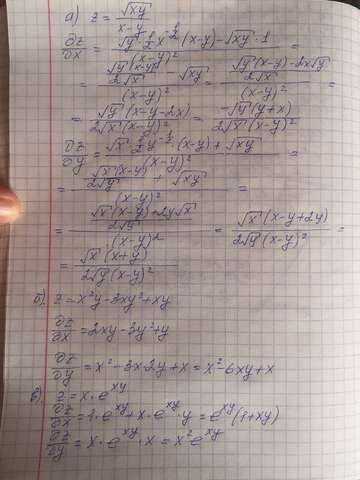 а) z = √(xy)/(x-y)
∂z/∂x = (√y · 1/2 x^(-1/2) (x-y) - √(xy) · 1)/(x-y)² =
= (√y (x-y)/(2√x) - √(xy))/(x-y)² = ((√y (x-y) - 2x√y)/(2√x))/(x-y)² =
= √y (x-y-2x)/(2√x (x-y)²) = -√y (y+x)/(2√x (x-y)²)
∂z/∂y = (√x · 1/2 y^(-1/2) · (x-y) + √(xy))/(x-y)² =
= (√x (x-y)/(2√y) + √(xy))/(x-y)² =
= ((√x (x-y) + 2y√x)/(2√y))/(x-y)² = √x (x-y+2y)/(2√y (x-y)²) =
= √x (x+y)/(2√y (x-y)²)
б) z = x²y - 3xy² + xy
∂z/∂x = 2xy - 3y² + y
∂z/∂y = x² - 3x·2y + x = x² - 6xy + x
в) z = x · e^(xy)
∂z/∂x = 1 · e^(xy) + x · e^(xy) · y = e^(xy) (1+xy)
∂z/∂y = x · e^(xy) · x = x² e^(xy)